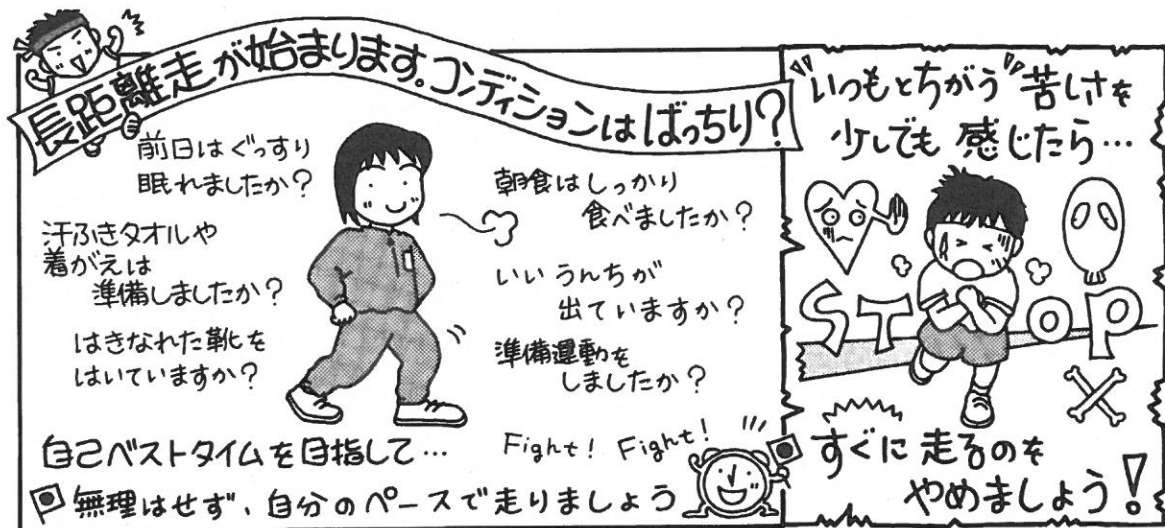 長距離走が始まります。コンディションはばっちり?
前日はぐっすり
眠れましたか?
汗ふきタオルや
着がえは
準備しましたか?
はきなれた靴を
はいていますか?
朝食はしっかり
食べましたか?
いいうんちが
出ていますか?
準備運動を
しましたか?
自己ベストタイムを目指して…
Fight! Fight!
無理はせず、自分のペースで走りましょう
"いつもとちがう"苦しさを
少しでも感じたら…
STOP
すぐに走るのを
やめましょう!